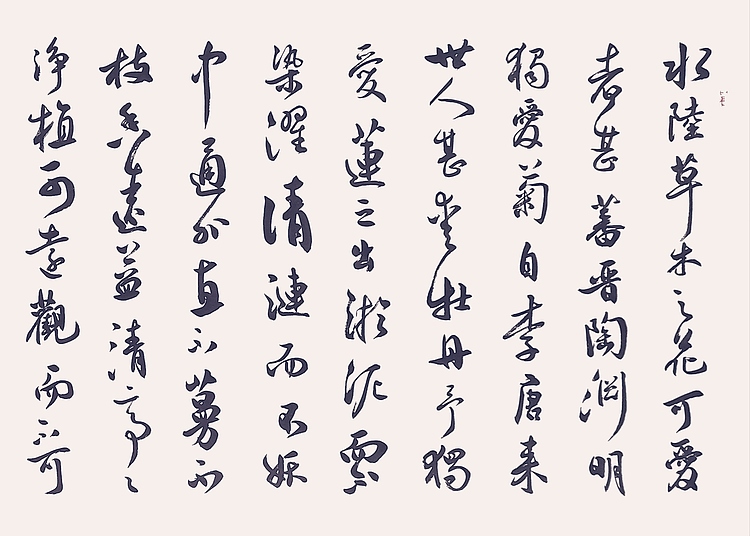 水陸草木之花可愛
者甚蕃晋陶淵明
獨愛菊自李唐来
世人甚愛牡丹予獨
愛蓮之出淤泥而不
染濯清漣而不妖
中通外直不蔓不
枝香遠益清亭々
淨植可遠觀而不可